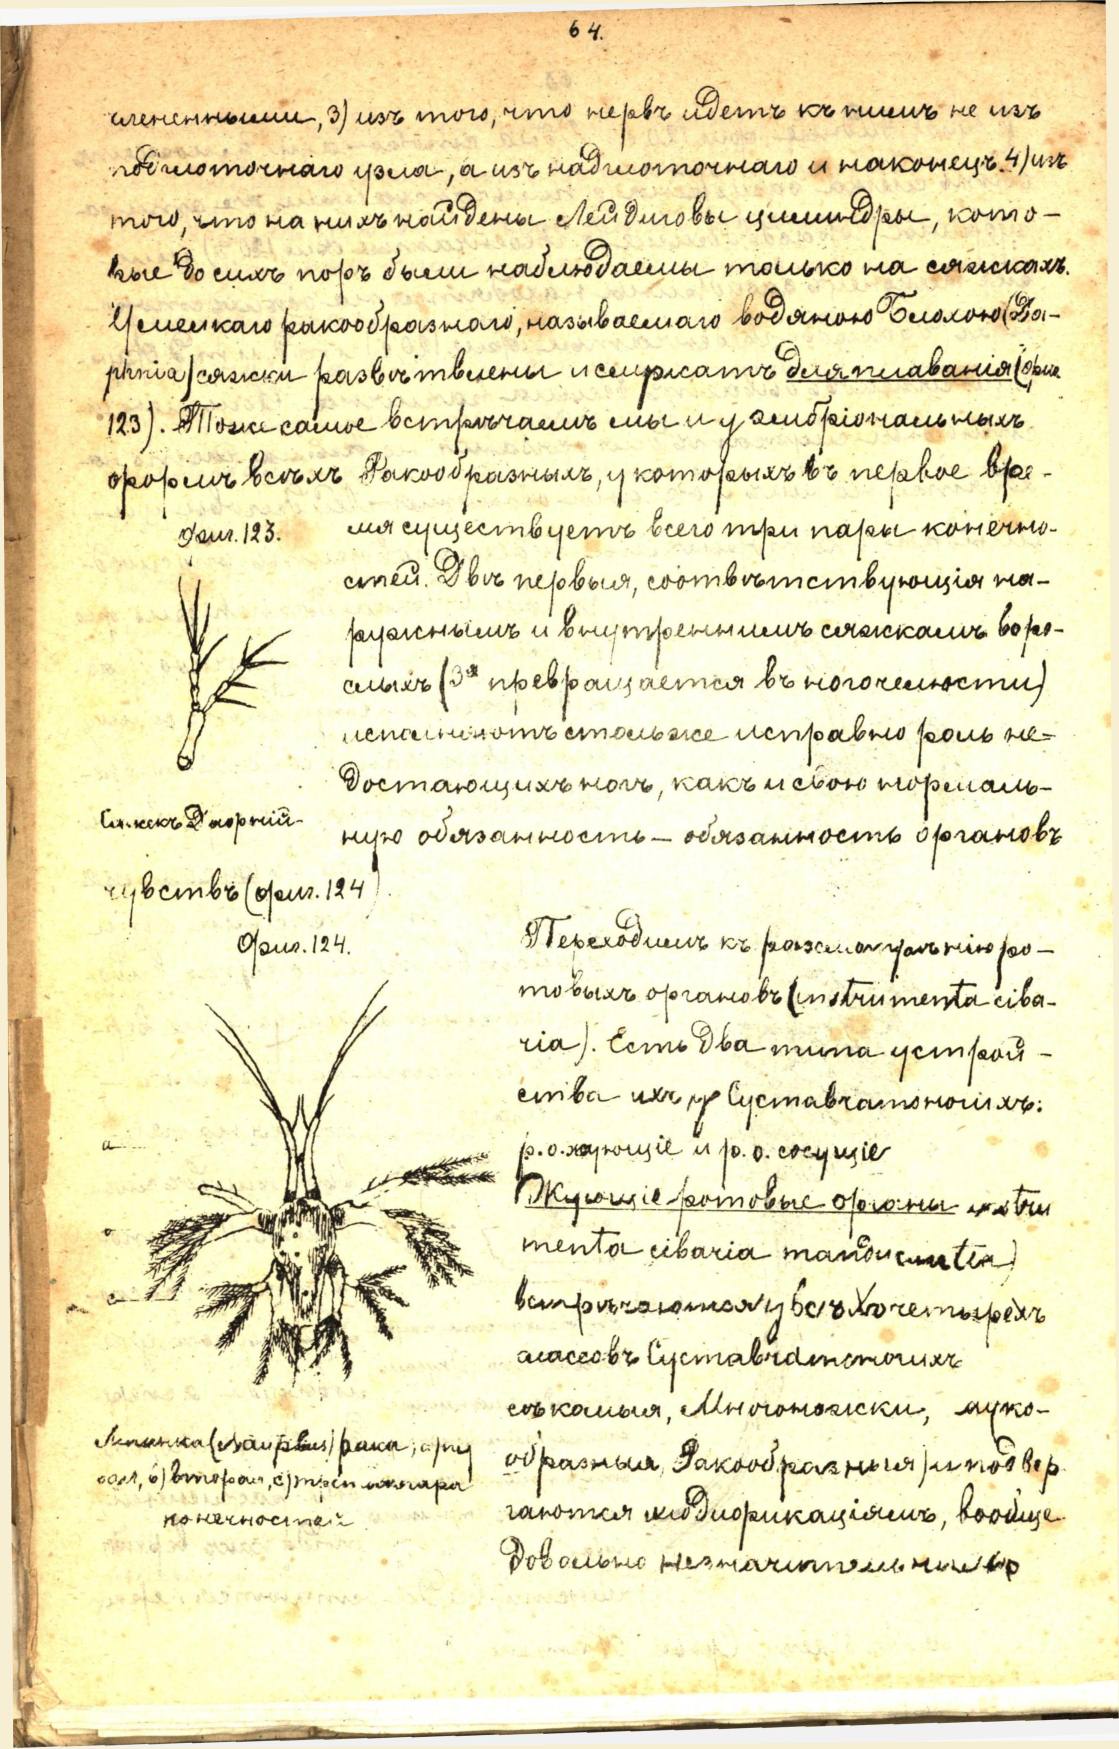 64.
члененными, 3) изъ того, что нервъ идетъ къ нимъ не изъ
подглоточнаго узла, а изъ надглоточнаго и наконецъ 4) изъ
того, что на нихъ найдены Лейдиговы цилиндры, кото-
рые до сихъ поръ были наблюдаемы только на сяжкахъ.
У мелкаго ракообразнаго, называемаго водяною Блохою (Da-
phnia) сяжки развѣтвлены и служатъ для плаванія (фиг.
123). Тоже самое встрѣчаемъ мы и у эмбріональныхъ
формъ всѣхъ Ракообразныхъ, у которыхъ въ первое вре-
Фиг. 123.
мя существуетъ всего три пары конечно-
стей. Двѣ первыя, соотвѣтствующія на-
ружнымъ и внутреннимъ сяжкамъ взро-
слыхъ (3я превращается въ ногочелюсти)
исполняютъ столь же исправно роль не-
достающихъ ногъ, какъ и свою нормаль-
Сяжекъ Дафній
ную обязанность — обязанность органовъ
чувствъ (фиг. 124)
Фиг. 124.
Переходимъ къ разсмотрѣнію ро-
товыхъ органовъ (instrumenta ciba-
ria). Есть два типа устрой-
ства ихъ у Суставчатоногихъ:
р. о. жующіе и р. о. сосущіе
Жующіе ротовые органы instru
menta cibaria manducantia)
встрѣчаются у всѣхъ четырехъ
классовъ Суставчатоногихъ
сѣкомыя, Многоножки, пауко-
образныя, Ракообразныя) и подвер
гаются модификаціямъ, вообще
довольно незначительнымъ
a
c
Личинка (Nauplius) рака; a) пер
вая, b) вторая, c) третья пара
конечностей